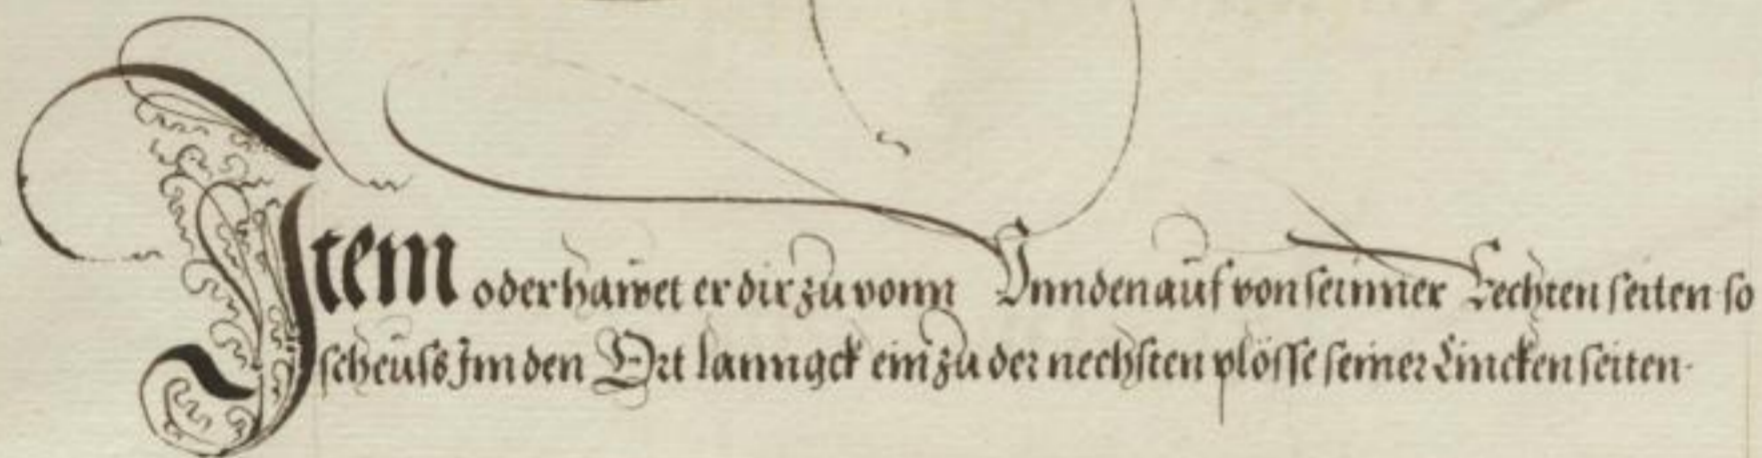 Item oder hawet er dir zu vonn Unnden auf von seinner Rechten seiten so
scheuss Im den Ort lanngck ein zu der nechsten plösse seiner Lincken seiten.